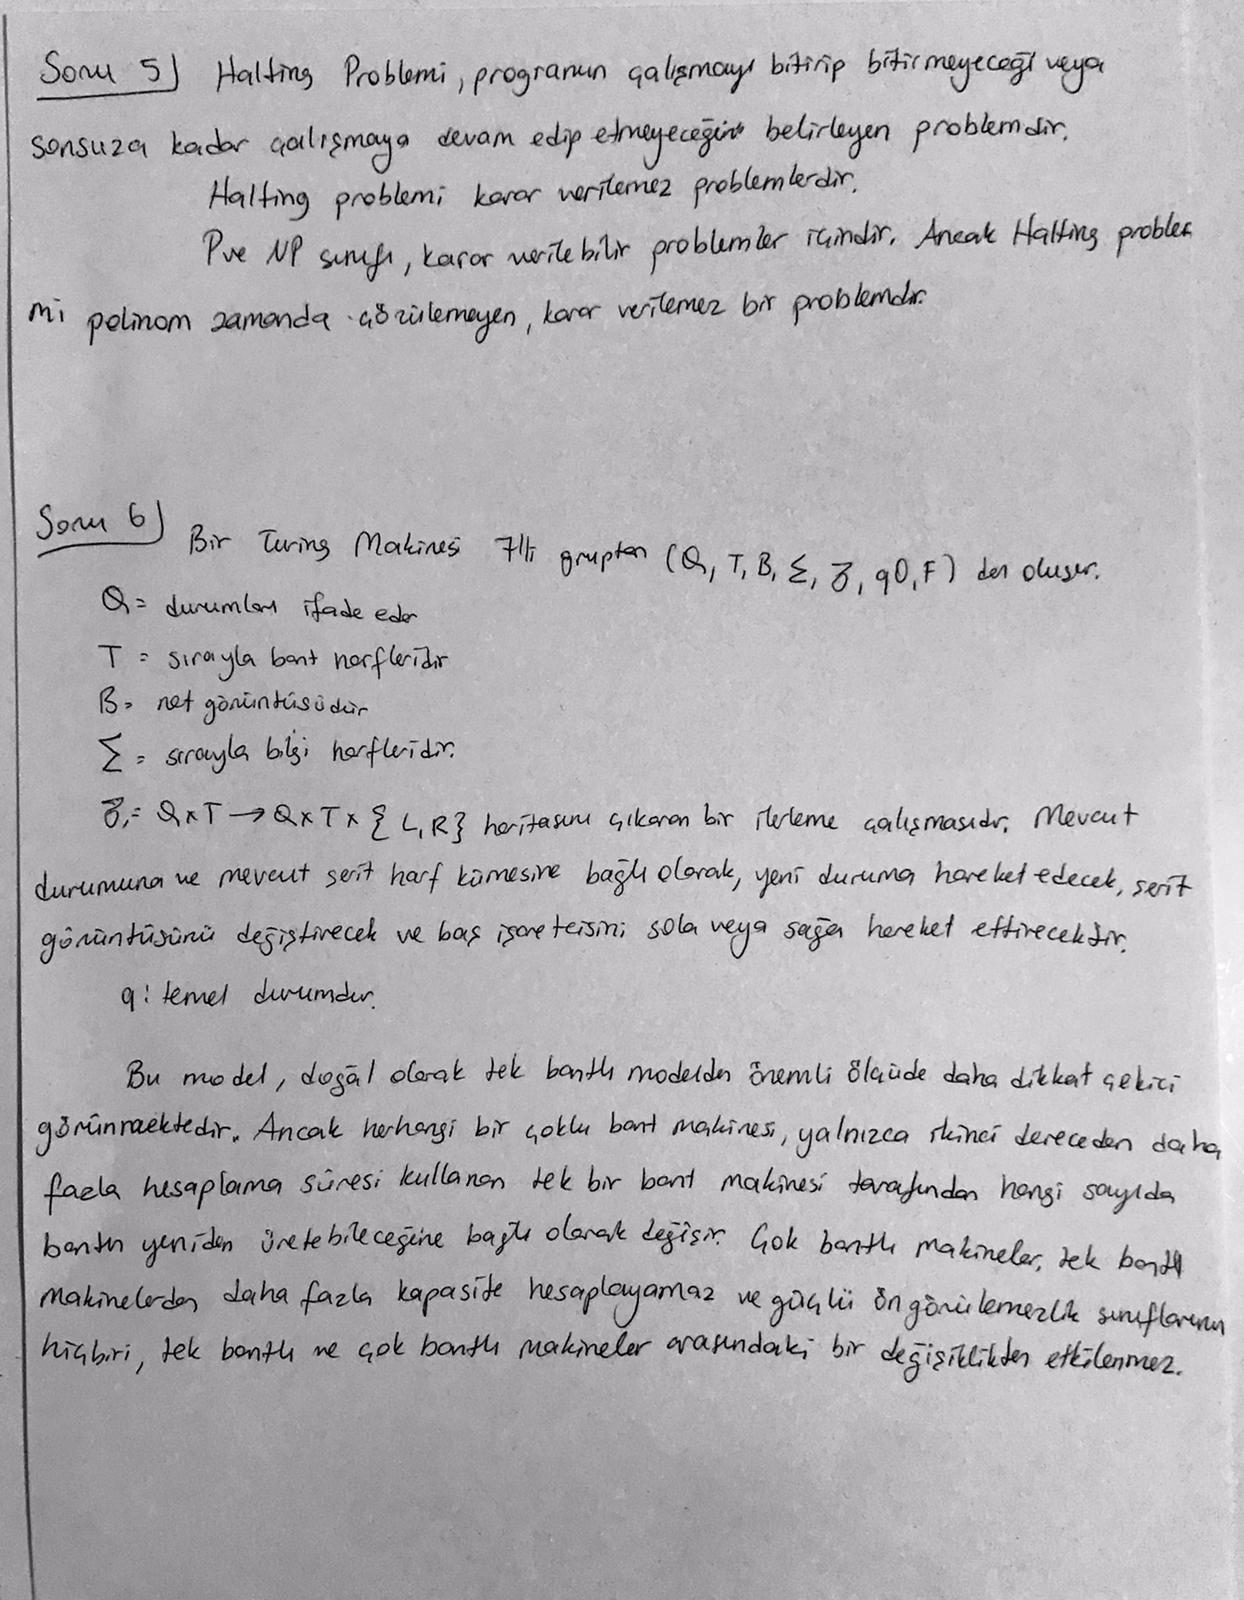 Soru 5) Halting Problemi, programın çalışmayı bitirip bitirmeyeceği veya
sonsuza kadar çalışmaya devam edip etmeyeceğini belirleyen problemdir.
Halting problemi karar verilemez problemlerdir.
P ve NP sınıfı, karar verilebilir problemler içindir. Ancak Halting proble
mi polinom zamanda çözülemeyen, karar verilemez bir problemdir.
Soru 6) Bir Turing Makinesi 7'li gruptan (Q, T, B, Σ, δ, q0, F) den oluşur.
Q = durumları ifade eder
T = sırayla bant harfleridir
B = net görüntüsüdür
Σ = sırayla bilgi harfleridir.
δ = Q×T → Q×T× {L, R} haritasını çıkaran bir ilerleme çalışmasıdır. Mevcut
durumuna ve mevcut şerit harf kümesine bağlı olarak, yeni duruma hareket edecek, şerit
görüntüsünü değiştirecek ve baş işaretçisini sola veya sağa hareket ettirecektir.
q: temel durumdur.
Bu model, doğal olarak tek bantlı modelden önemli ölçüde daha dikkat çekici
görünmektedir. Ancak herhangi bir çoklu bant makinesi, yalnızca ikinci dereceden daha
fazla hesaplama süresi kullanan tek bir bant makinesi tarafından hangi sayıda
bantın yeniden üretebileceğine bağlı olarak değişir. Çok bantlı makineler, tek bantlı
makinelerden daha fazla kapasite hesaplayamaz ve güçlü öngörülemezlik sınıflarının
hiçbiri, tek bantlı ve çok bantlı makineler arasındaki bir değişiklikten etkilenmez.